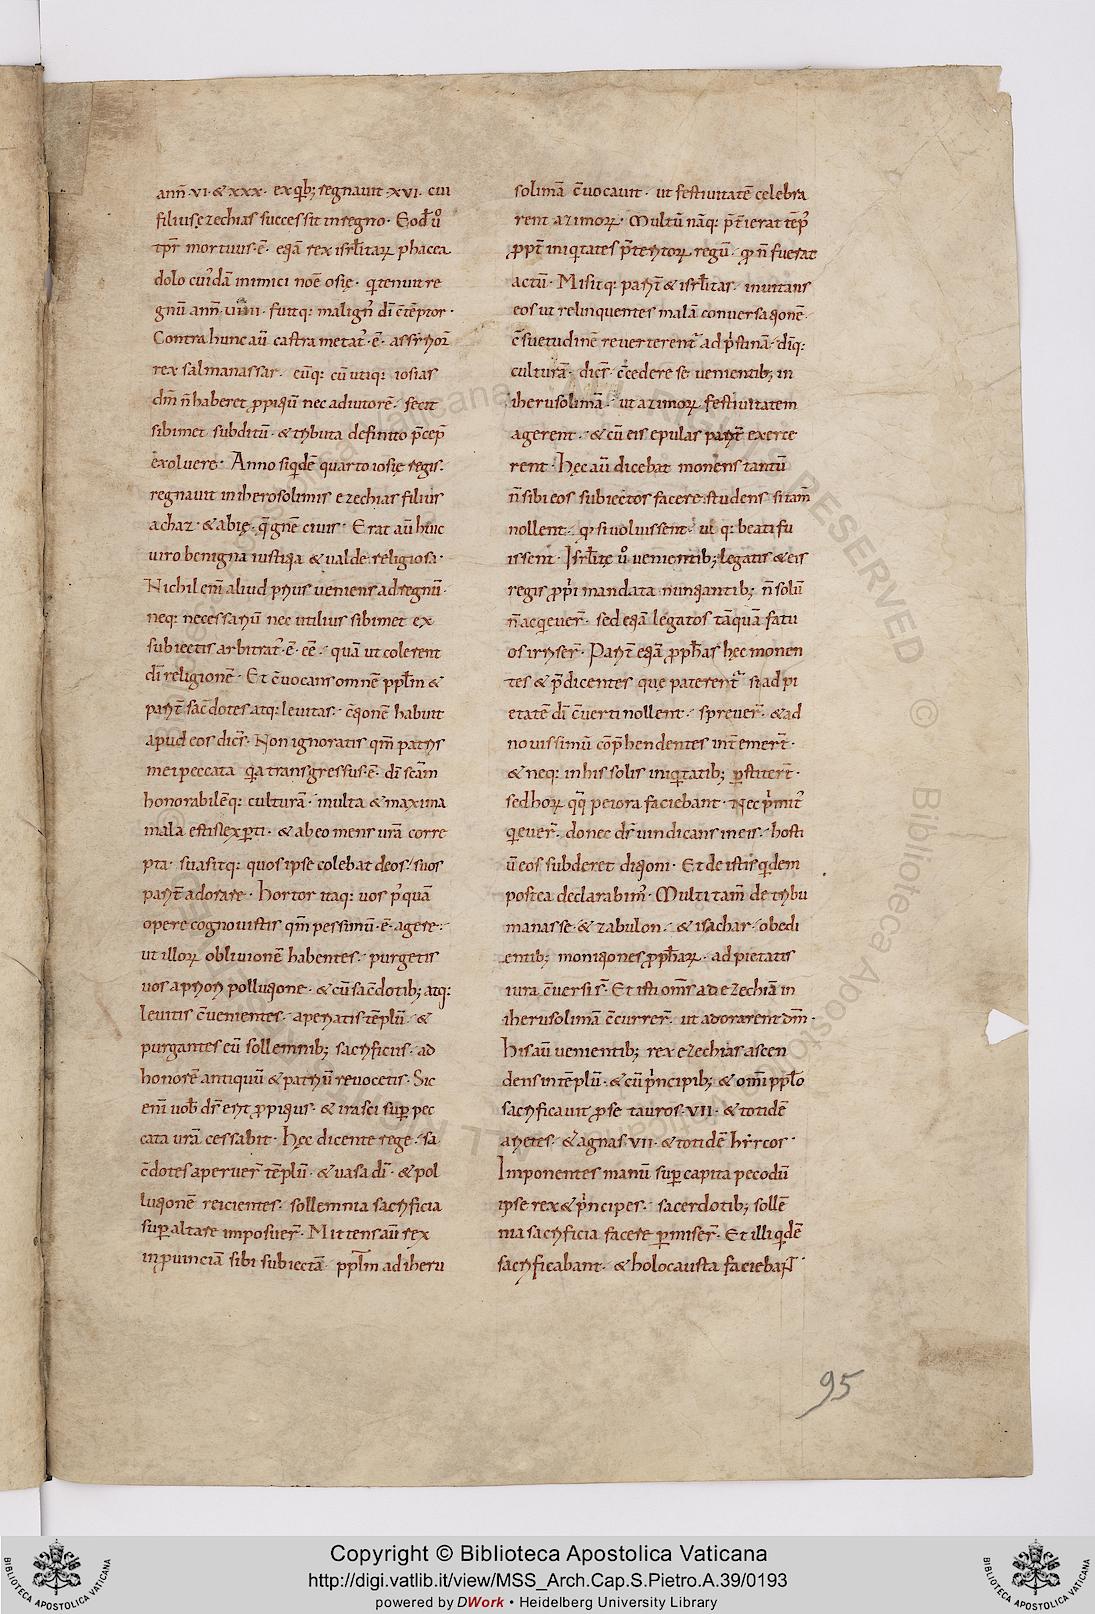 ann̄·vi·&xxx· ex qb; regnauit·xvi· cui
filius ęzechias successit in regno· Eod̄ u̇
tp̄r mortuus·ē· eqā rex isrłitaꝝ phacea
dolo cuiꝰdā inimici noē osię· q tenuit re
gnū ann̄·uiiii· fuitq: malignꝰ dī c̄tēptor·
Contra hunc aū castra metatꝰ·ē· assirioꝝ
rex salmanassar· cūq: cū utiq: iosias
dm̄ n̄ haberet ꝓpiqū nec adiutorē· fecit
sibimet subditū· & tributa definito p̄cep̄
exoluere· Anno siqdē quarto iosię regis·
regnauit in iherosolimis ezechias filius
achaz· & abię· q̄ gnē ciuis· Erat aū huic
uiro benigna iustiqa & ualde religiosa·
Nichil em̄ aliud prius ueniens ad regnū·
neq: necessariū nec utilius sibimet ex
subiectis arbitratꝰ·ē·eē· quā ut colerent
dī religionē· Et c̄uocans omnē pplm̄ &
parit̄ sac̄dotes atq: leuitas· c̄qonē habuit
apud eos dicr̄· Non ignoratis qm̄ patris
mei peccata qa transgressus·ē· dī sc̄am
honorabilēq: culturā· multa & maxima
mala estis exꝑti· & ab eo mens ur̄a corre
pta· suasitq: quos ipse colebat deos· suos
parit̄ adorare· Hortor itaq: uos p̄quā
opere cognouistis qm̄ pessimū·ē·agere·
ut illoꝝ obliuionē habentes· purgetis
uos a priori polluqone· & cū sac̄dotib; atq:
leuitis c̄uenientes· aperiatis tēplū· &
purgantes eū sollemnib; sacrificiis· ad
honorē antiquū & patriū reuocetis· Sic
eni uob̄ ds̄ erit ꝓpiqus· & irasci suꝑ pec
cata ur̄a cessabit· Hęc dicente rege· sa
c̄dotes aperuer̄ tēplū· & uasa dī· & pol
luqonē reicientes· sollemnia sacrificia
suꝑ altare imposuer̄· Mittens aū rex
in ꝓuinciā sibi subiectā pplm̄ ad iheru
solimā c̄uocauit· ut festiuitatē celebra
rent azimoꝝ· Multū nāq: p̄t̄ierat tēpꝰ
ꝓpt̄ iniqtates p̄teritoꝝ regū· qꝰ n̄ fuerat
actū· Misitq: parit̄ & isrłitas· inuitans
eos ut relinquentes malā conuersaqonē·
c̄suetudinē reuerterentꝰ ad p̄stinā· diq:
culturā· dicr̄· c̄cedere se uenientib; in
iherusolimā· ut azimoꝝ festiuitatem
agerent· & cū eis epulas parit̄ exerce
rent· Hęc aū dicebat monens tantū
n̄ sibi eos subiectos facere studens si tam̄
nollent· qꝰ si uoluissent· ut q: beati fu
issent· Isrłitę u̇ uenientib; legatis & eis
regis ꝓpi mandata nunqantib; n̄ solū
n̄ acqeuer̄· sed eqā legatos tāquā fatu
os irriser̄· Parit̄ eqā ꝓph̄as hęc monen
tes & p̄dicentes quę paterentꝰ si ad pi
etatē dī c̄uerti nollent· spreuer̄· & ad
nouissimū cōp̄hendentes int̄emer̄t·
& neq: in his solis iniqtatib; ꝑstiter̄t·
sed hoꝝ qq peiora faciebant· Nec p̄mitꝰ
qeuer̄· donec ds̄ uindicans in eis· hosti
ū eos subderet diqoni· Et de istis qdem
postea declarabimꝰ· Multi tam̄ de tribu
manasse· & zabulon· & isachar· obedi
entib; moniqones ꝓph̄aꝝ· ad pietatis
iura c̄uersi s̄· Et isti om̄s ad ezechiā in
iherusolimā c̄currer̄· ut adorarent dm̄·
His aū uenientib; rex ezechias ascen
dens in tēplū· & cū p̄ncipib; & om̄i pplo
sacrificauit ꝓ se tauros·VII· & totidē
arietes· & agnas·VII· & totidē hircos·
Imponentes manū suꝑ capita pecodū
ipse rex & p̄ncipes· sacerdotib; sollē
nia sacrificia facere ꝑmiser̄· Et illi qdē
sacrificabant· & holocausta faciebant·
95
Copyright © Biblioteca Apostolica Vaticana
http://digi.vatlib.it/view/MSS_Arch.Cap.S.Pietro.A.39/0193
powered by DWork • Heidelberg University Library